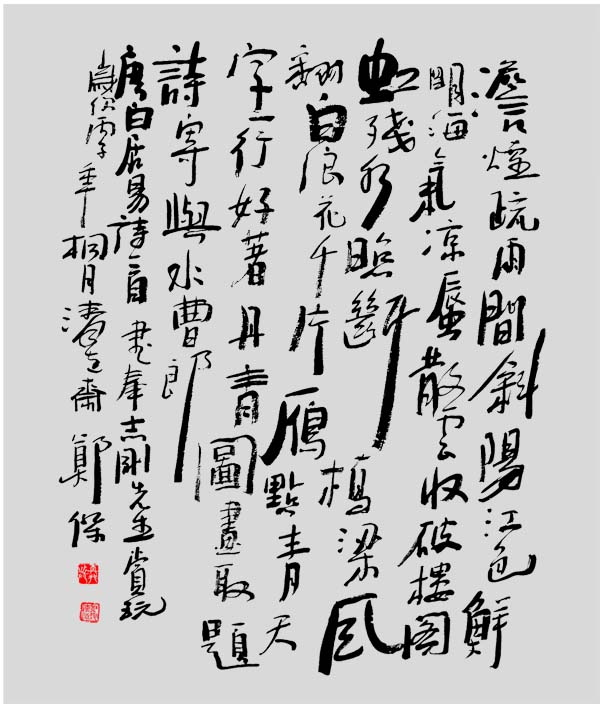 澹煙疏雨間斜陽江色鮮
明海氣凉蜃散雲收破樓閣
虹殘水照斷橋梁風
翻白浪花千片雁點青天
字一行好著丹青圖畫取題
詩寄與水曹郎
唐白居易詩一首書奉志剛先生賞玩
歲次年桐月齋鄭保